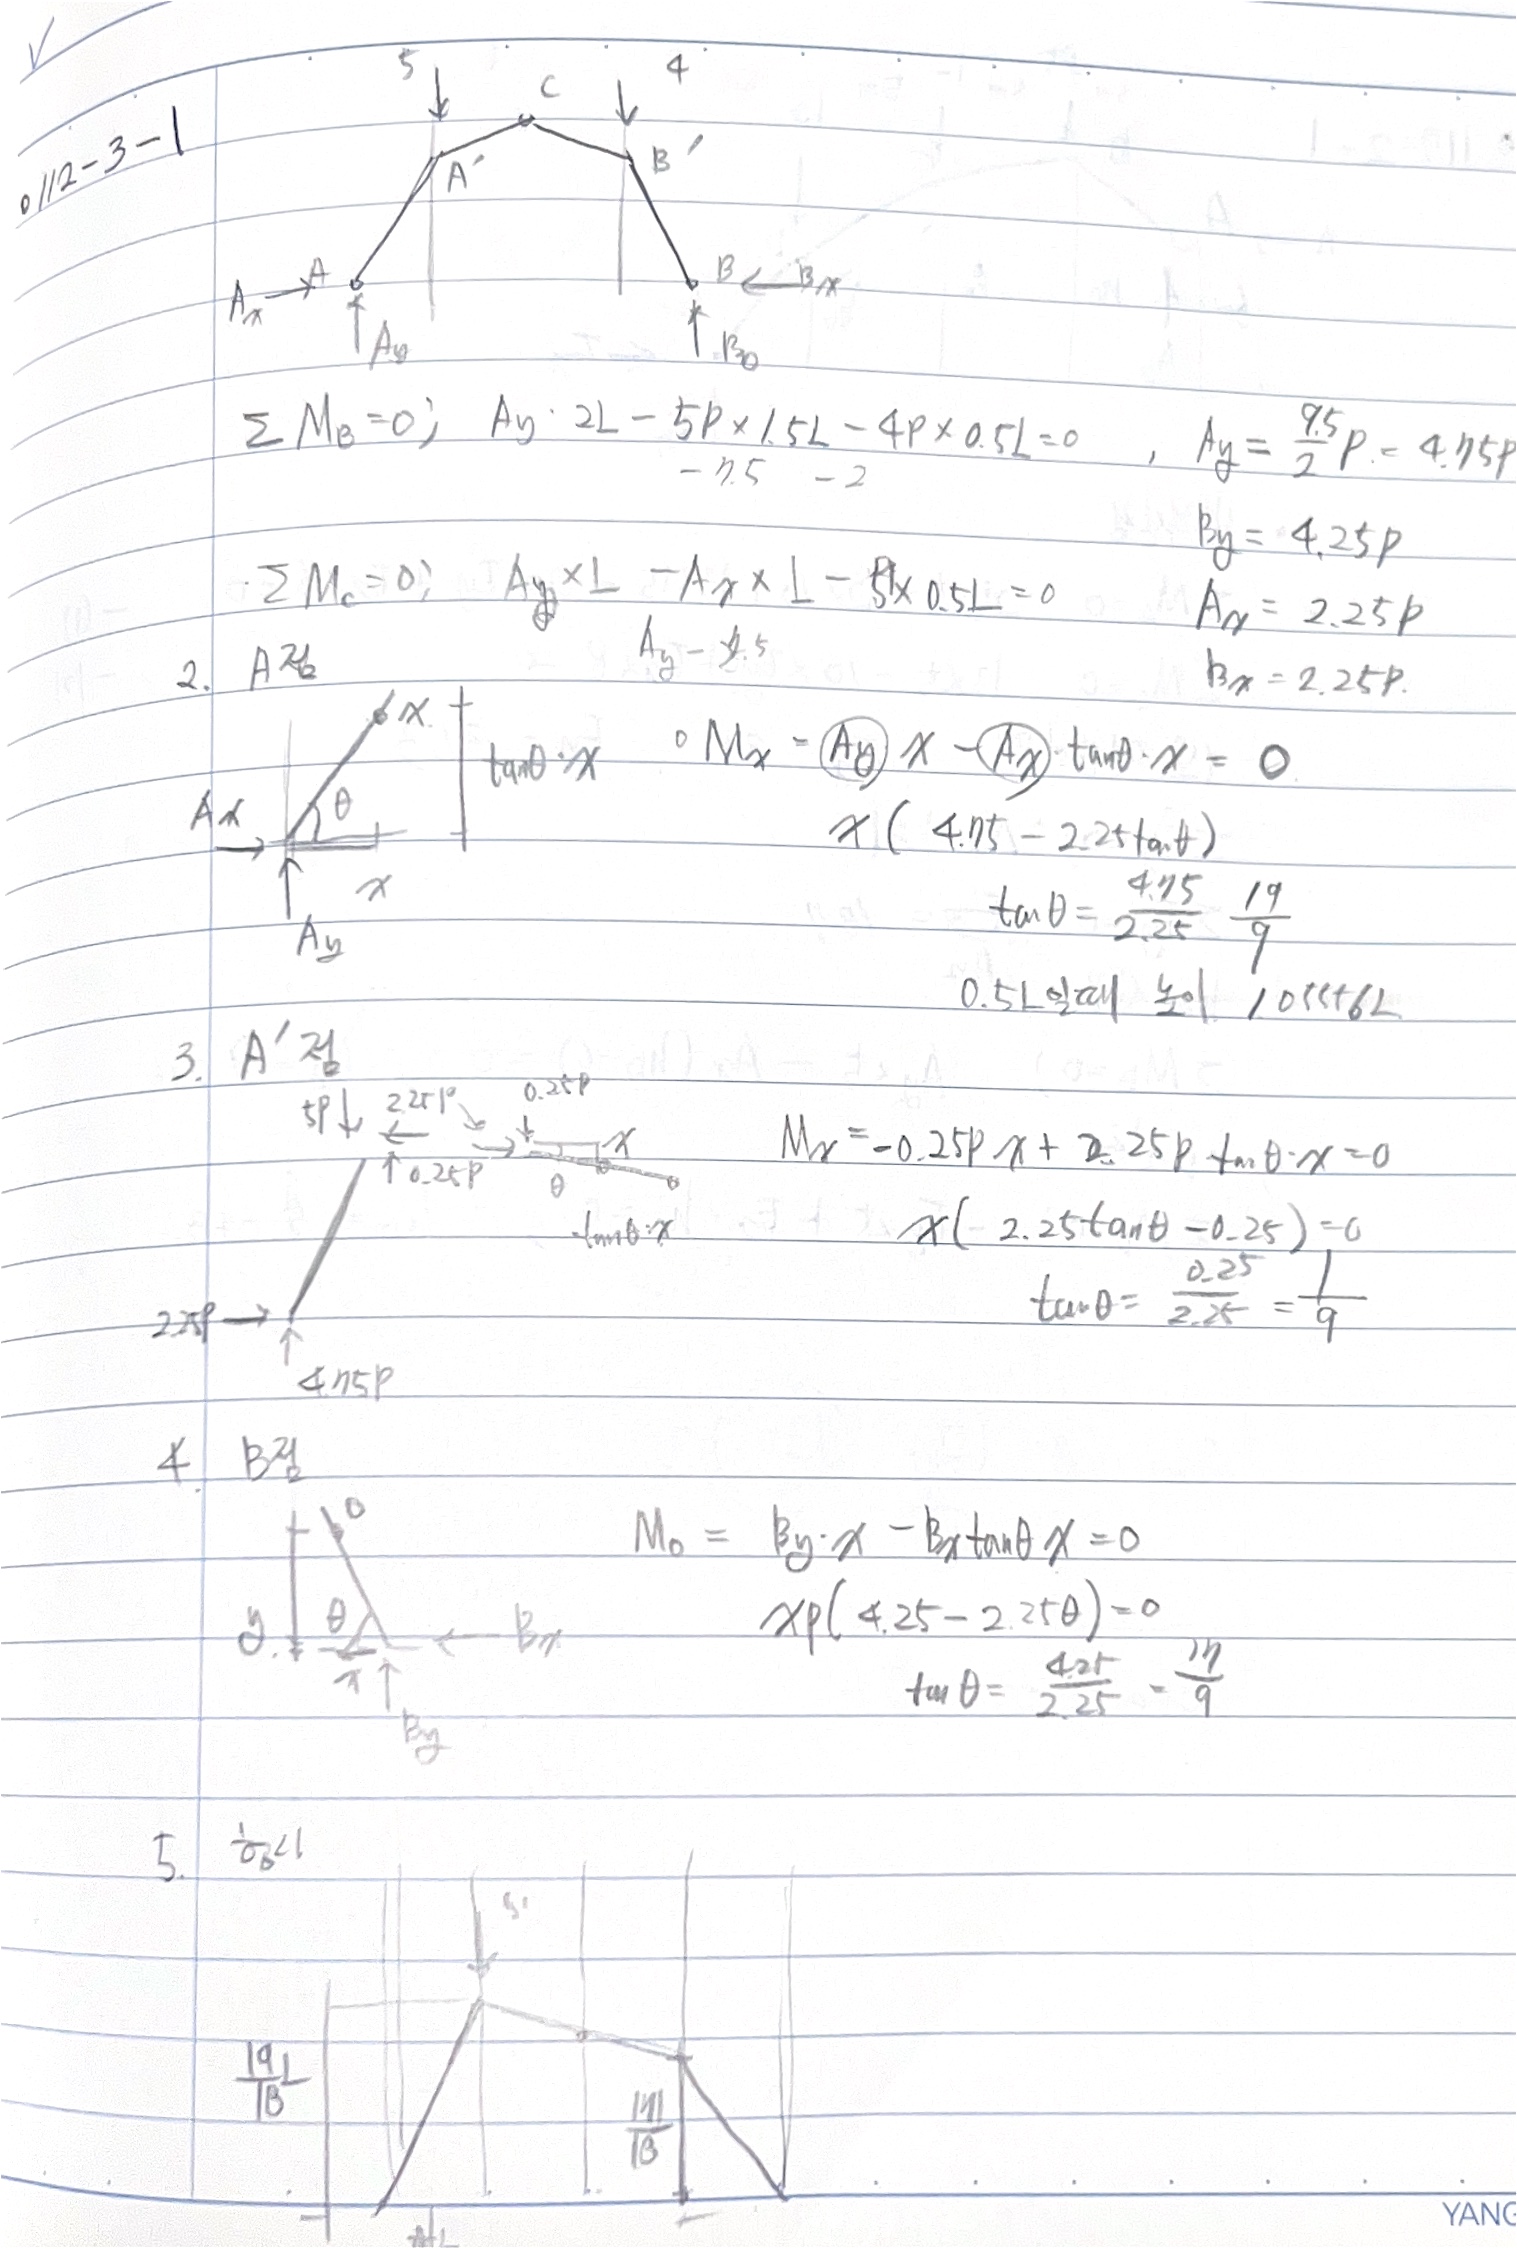 0112-3-1
5 4
C
A′ B′
Ax → A B ← Bx
Ay By
ΣM_B=0; Ay·2L - 5P×1.5L - 4P×0.5L=0, Ay = 9.5/2 P = 4.75P
-7.5 -2
By = 4.25P
ΣMc=0; Ay×L - Ax×L - 5P×0.5L=0
Ax = 2.25P
Ay - 2.5
Bx = 2.25P.
2. A점
x
tanθ·x
Mx = Ay x - Ax·tanθ·x = 0
Ax θ
x
Ay
x(4.75-2.25tanθ)
tanθ = 4.75/2.25 19/9
0.5L일때 높이
3. A′점
5P↓ 2.25P 0.25P
0.25P x
θ
tanθ·x
Mx=-0.25Px+2.25P tanθ·x=0
x(2.25tanθ-0.25)=0
tanθ = 0.25/2.25 = 1/9
2.25P →
4.75P
4. B점
0
y θ ← Bx
x
By
Mo = By·x - Bx tanθ x = 0
xP(4.25-2.25θ)=0
tanθ = 4.25/2.25 = 17/9
5. 형상
19/18 L
17/18
YANG